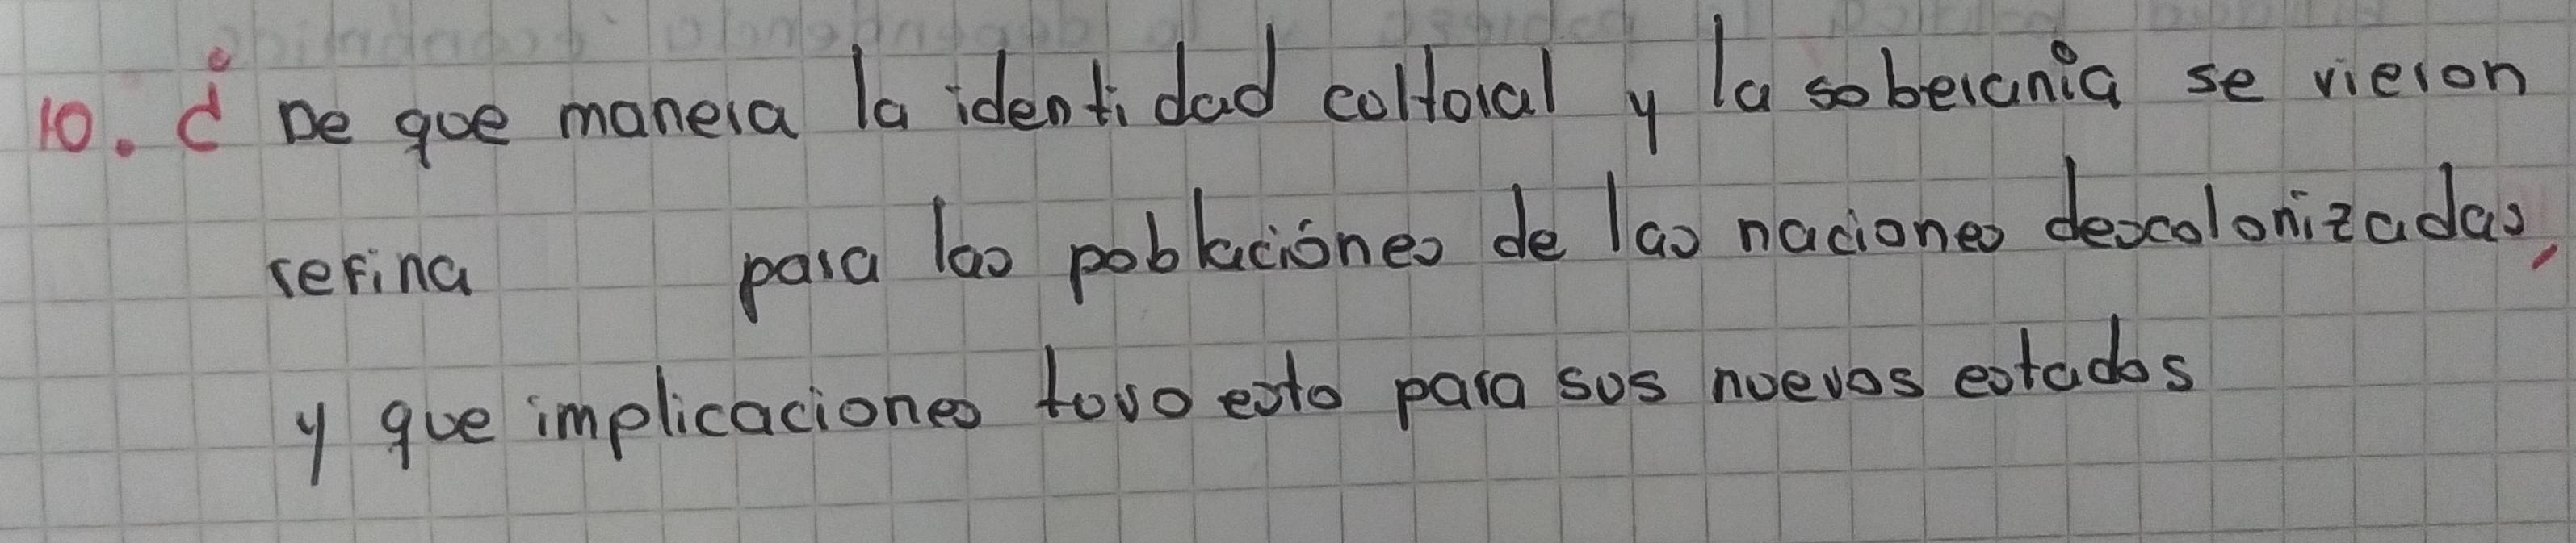 10. ¿ De que manera la identidad coltoral y la soberania se vieron
refina para las poblaciónes de las naciones descolonizadas,
y que implicaciones tovo esto para sus nuevos estados